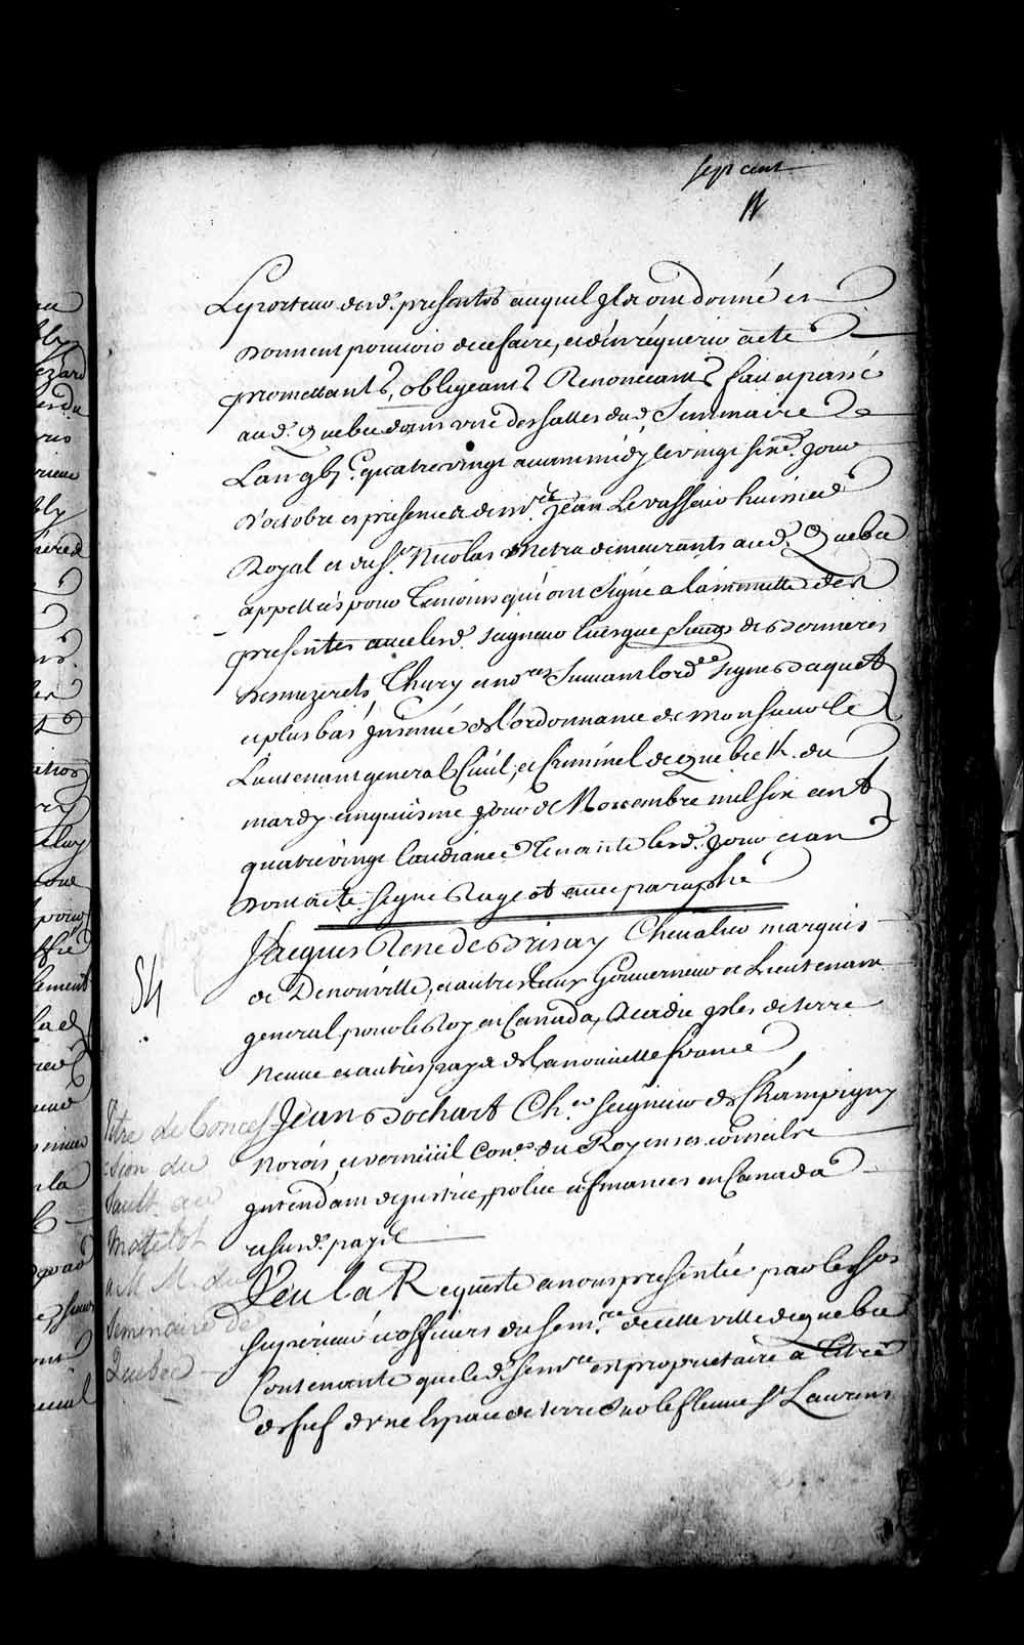 sept cent
Le porteur desd. presentes auquel Ils ont donné et
donnent pouvoir de ce faire, et d'en réquerir acte
promettants, obligeants Renonceants fait et passé
aud. Quebec dans une des salles dud. Seminaire
L'an gbj.c quatre vingt avant midy le vingt sixe. Jour
d'octobre es presence de mre. Jean Levasseur huissier
Royal et du sr. Nicolas Metru demeurants aud. Quebec
appellés pour temoins qui ont signé a la minutte des
presentes avec lesd. seigneur Euesque sieurs de Bernieres
Desmezerets, Thury et nore. Suivant lord.ce signé Paquet
et plus bas Jnsinué de l'ordonnance de Monsieur le
Lieutenant general Civil, et Criminel de Quebec du
mardy cinquisme Jour de Novembre mil six cent
quatre vingt l'audiance tenante lesd. Jour et an
dont acte. signé Rageot avec paraphe
Jacques René de Brisay Chevalier marquis
de Denonville, et autres lieux Gouverneur et Lieutenant
general pour le Roy en Canada, Acadie Isles de terre
Neuve et autres pays de la nouvelle france
54
Jean Bochart Ch.er seigneur de Champigny
Noroÿ et verneüil Con.er du Roy en ses conseils
Intendant de justice, police et finances en Canada
et sur.d. pays
Titre de Conces-
sion du
Sault au
Matelot
a M M. du
Seminaire de
Quebec
Veu la Requeste a nous presentée par les srs
superieur et officiers du sem.re de cette ville de quebec
Contenante que le d. sem.re est proprietaire a titre
de fief d'une Espace de terre sur le fleuve St Laurens